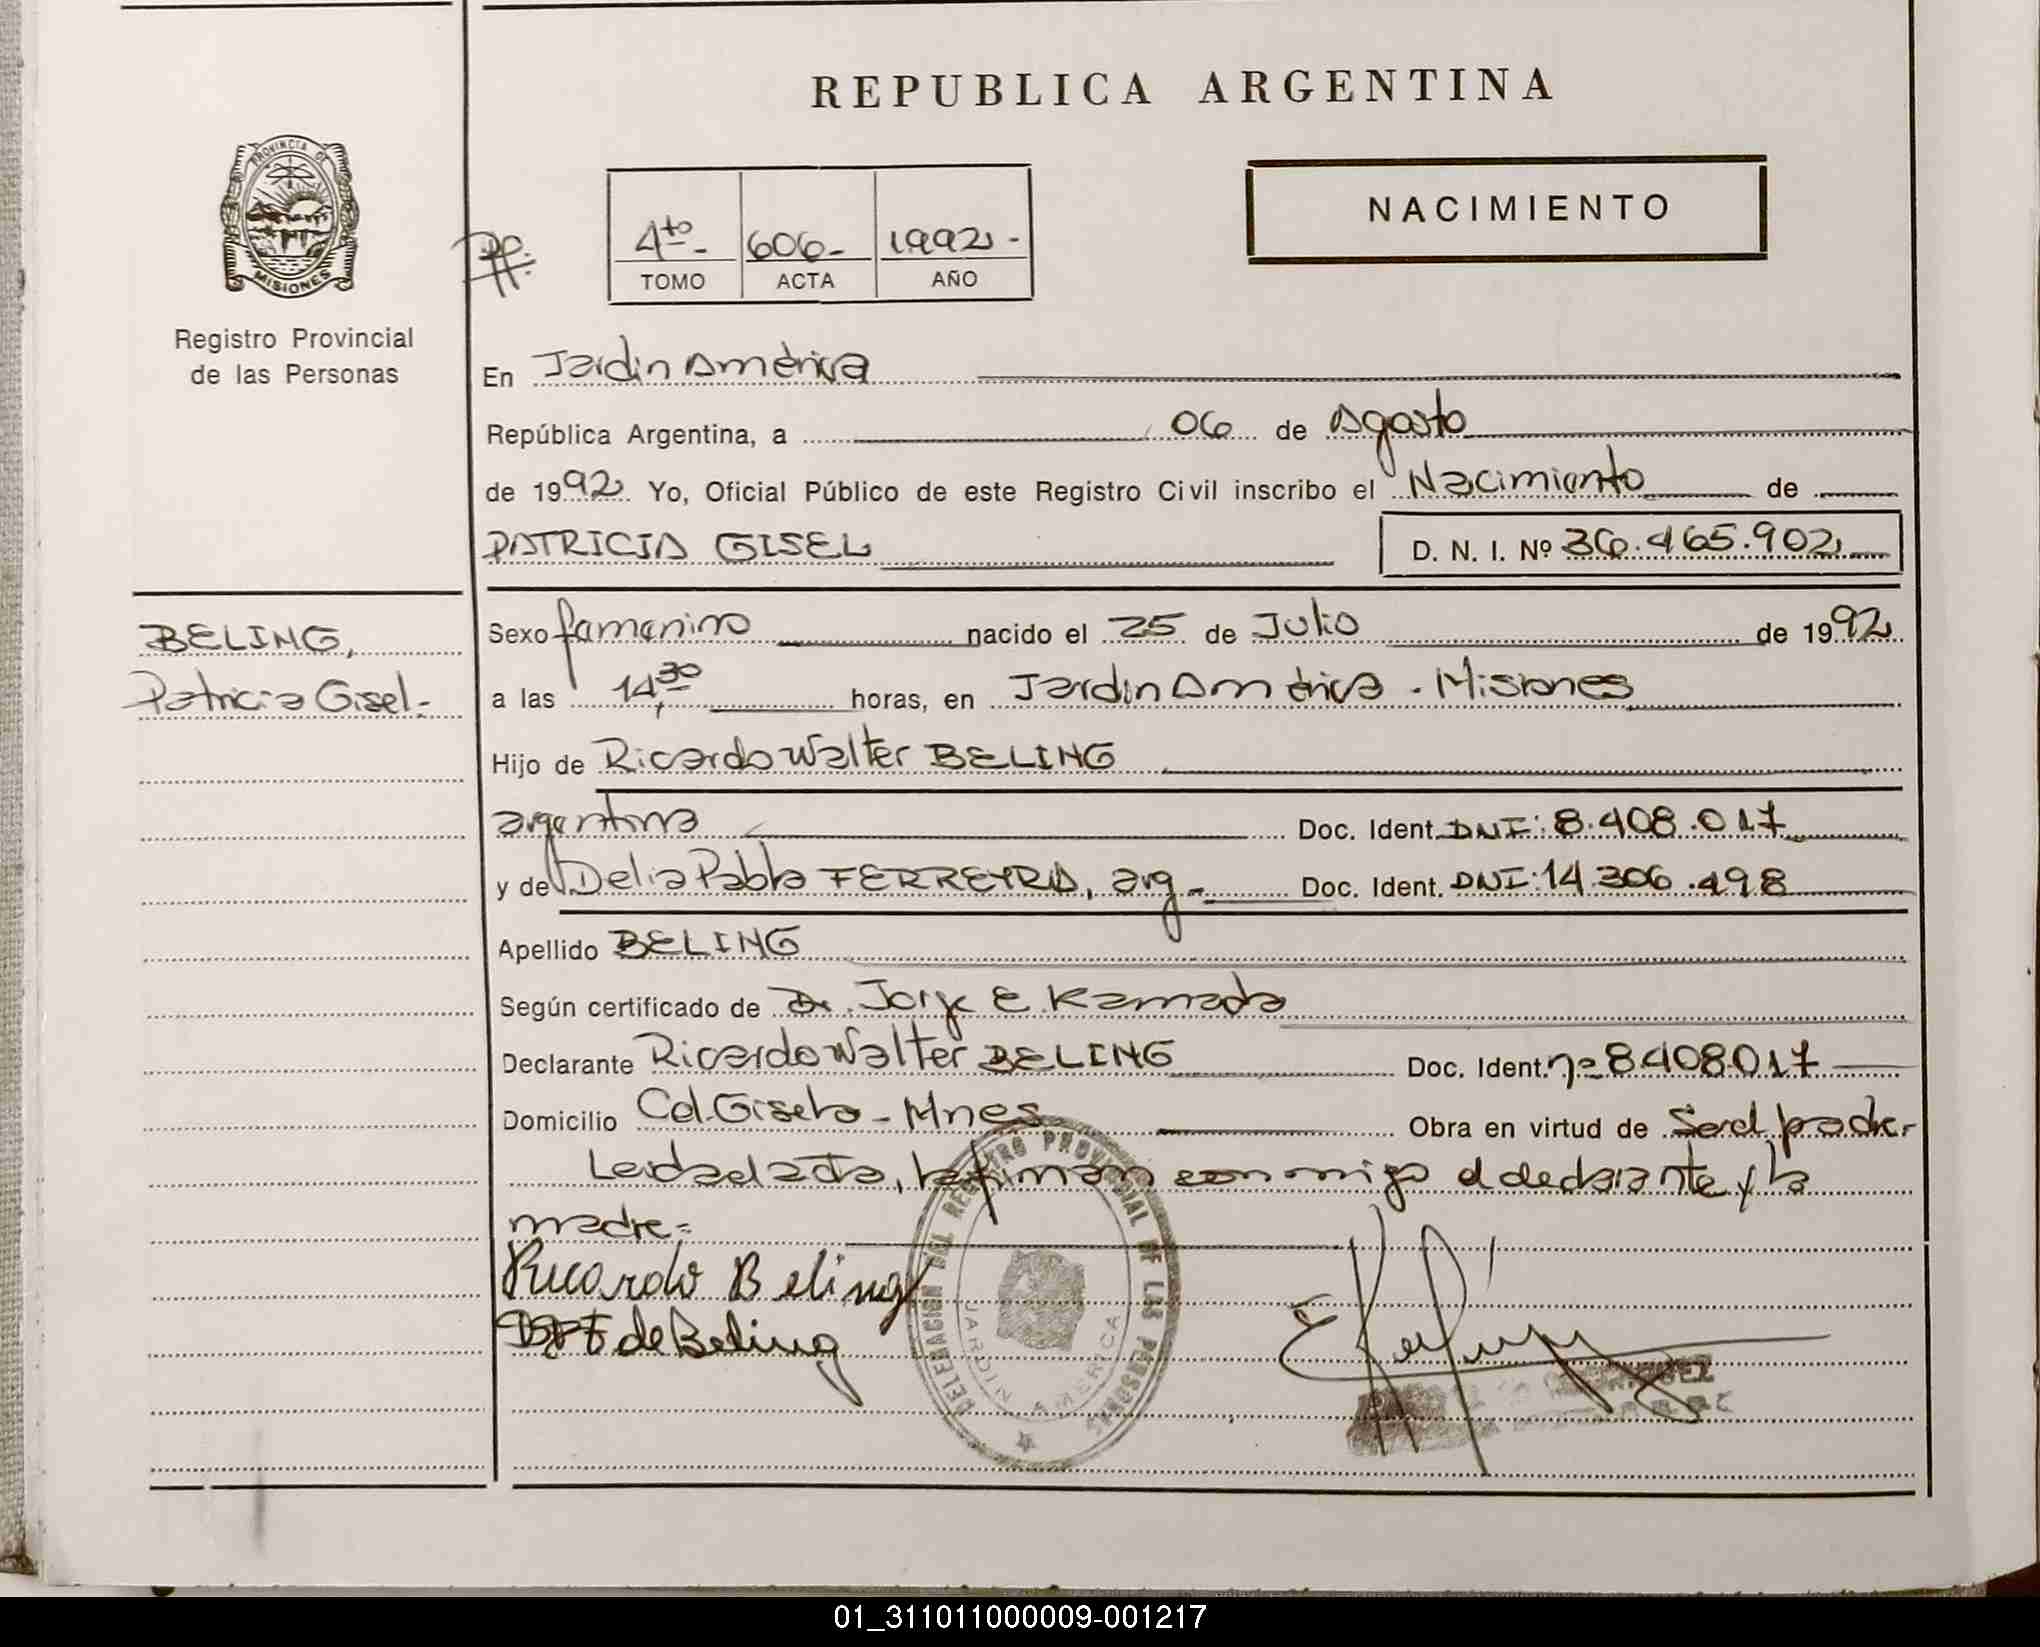 REPUBLICA ARGENTINA
PROVINCIA DE MISIONES
Registro Provincial
de las Personas
NACIMIENTO
4to - 606 - 1992 -
TOMO ACTA AÑO
En Jardin América
República Argentina, a 06 de Agosto
de 1992 Yo, Oficial Público de este Registro Civil inscribo el Nacimiento de
PATRICIA GISEL D. N. I. Nº 36.465.902
BELING,
Patricia Gisel.-
Sexo femenino nacido el 25 de Julio de 1992
a las 14,30 horas, en Jardin América - Misiones
Hijo de Ricardo Walter BELING
argentino Doc. Ident. DNI: 8.408.017
y de Delia Pabla FERREYRA, arg - Doc. Ident. DNI: 14.306.498
Apellido BELING
Según certificado de Dr. Jorge E. Kamada
Declarante Ricardo Walter BELING Doc. Ident. nº 8.408.017
Domicilio Col. Gisela - Mnes Obra en virtud de Ser el padre.-
Leida el acta, la firman conmigo el declarante y la
madre.-
Ricardo Beling
de Beling
DELEGACION DEL REGISTRO PROVINCIAL DE LAS PERSONAS
JARDIN AMERICA
01_311011000009-001217